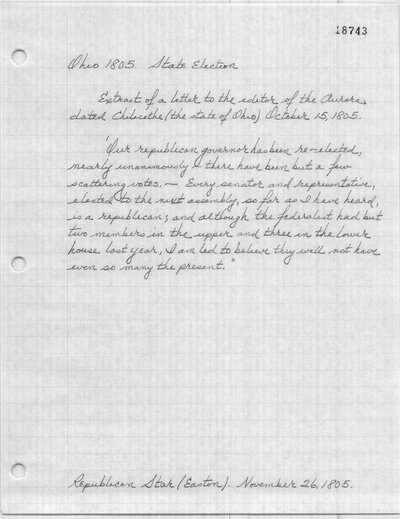 18743
Ohio 1805. State Election
Extract of a letter to the editor of the Aurora,
dated Chilecothe (the state of Ohio) October 15, 1805.
"Our republican governor has been re-elected,
nearly unanimously - there have been but a few
scattering votes. — Every senator and representative,
elected to the next assembly, so far as I have heard,
is a republican; and although the federalist had but
two members in the upper and three in the lower
house last year, I am led to believe they will not have
even so many the present."
Republican Star (Easton). November 26, 1805.